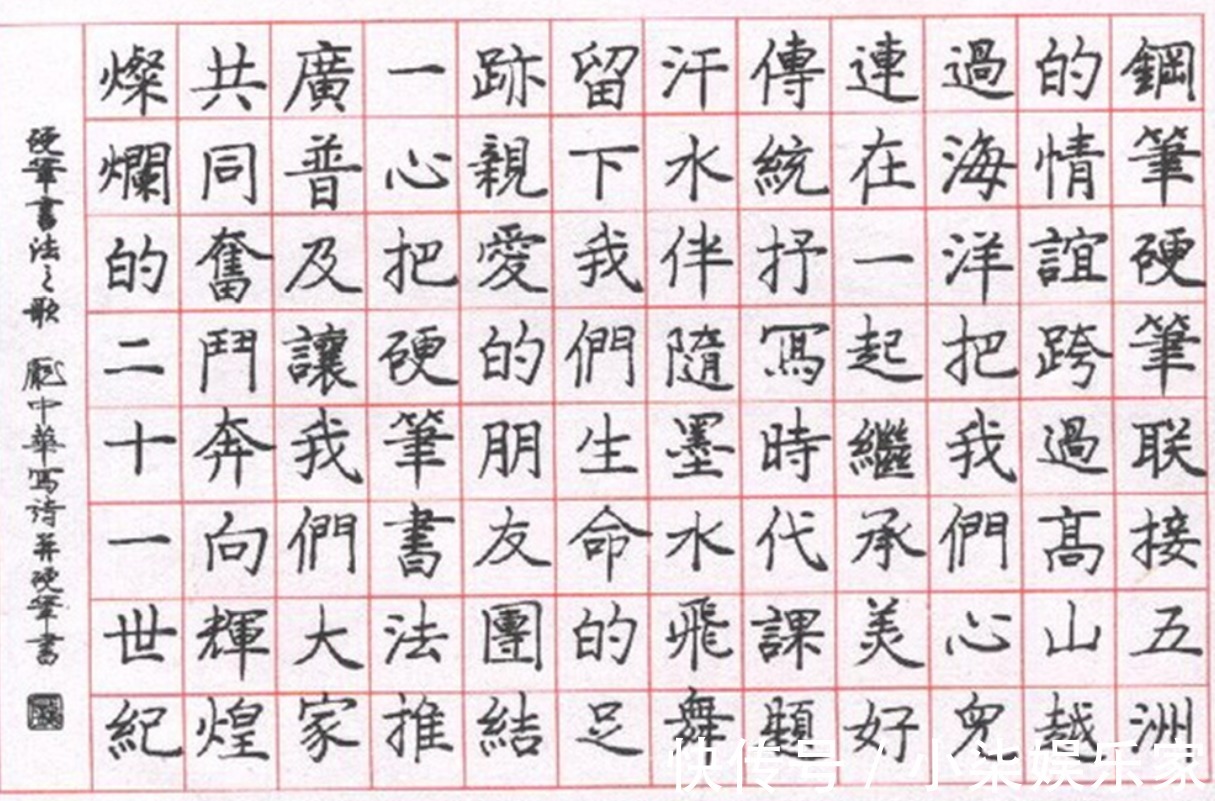 鋼筆硬筆联接五洲
的情誼跨過髙山越
過海洋把我們心兒
連在一起繼承美好
傳統抒寫時代課題
汗水伴隨墨水飛舞
留下我們生命的足
跡親愛的朋友團結
一心把硬筆書法推
廣普及讓我們大家
共同奮鬥奔向輝煌
燦爛的二十一世紀
硬筆書法之歌 龐中華寫诗并硬筆書
快传号/小柒娱乐家